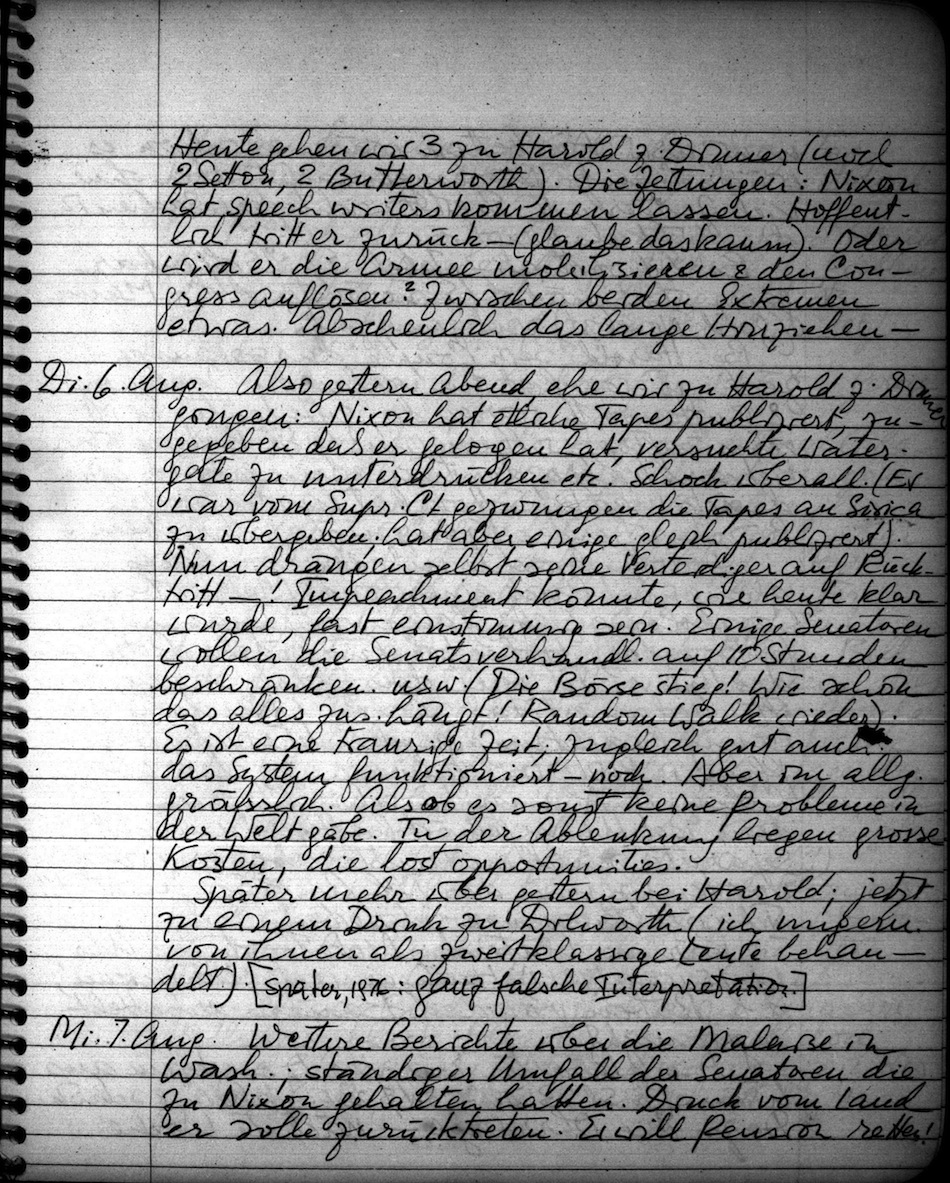 Heute gehen wir 3 zu Harold z. Dinner (und
2 Setton, 2 Butterworth). Die Zeitungen: Nixon
hat speech writers kommen lassen. Hoffent-
lich tritt er zurück – (glaube das kaum). Oder
wird er die Armee mobilisieren & den Con-
gress auflösen? Zwischen beiden Extremen
etwas. Abscheulich das lange Hinziehen –
Di. 6. Aug. Also gestern Abend, ehe wir zu Harold z. Dinner
gongen: Nixon hat etliche Tapes publiziert, zu-
gegeben dass er gelogen hat, versuchte Water-
gate zu unterdrücken etc. Schock überall. (Er
war vom Supr. Ct gezwungen die Tapes an Sirica
zu übergeben; hat aber einige gleich publiziert).
Nun drängen selbst seine Verteidiger auf Rück-
tritt –! Impeachment könnte, wie heute klar
wurde, fast einstimmig sein. Einige Senatoren
wollen die Senatsverhandl. auf 10 Stunden
beschränken. usw (Die Börse stieg! Wie schön
das alles zus. hängt! Random Walk wieder).
Es ist eine traurige Zeit; zugleich gut auch:
das System funktioniert – noch. Aber im allg.
grässlich. Als ob es sonst keine Probleme in
der Welt gäbe. In der Ablenkung liegen grosse
Kosten, die lost opportunities.
Später mehr über gestern bei Harold; jetzt
zu einem Drink zu Dilworth (ich ungern.
von ihnen als zweitklassige Leute behan-
delt). [Später, 1976: ganz falsche Interpretation.]
Mi. 7. Aug. Weitere Berichte über die Malaise in
Wash.; ständiger Umfall der Senatoren die
zu Nixon gehalten hatten. Druck vom Land
er solle zurücktreten. Er will Pension retten!